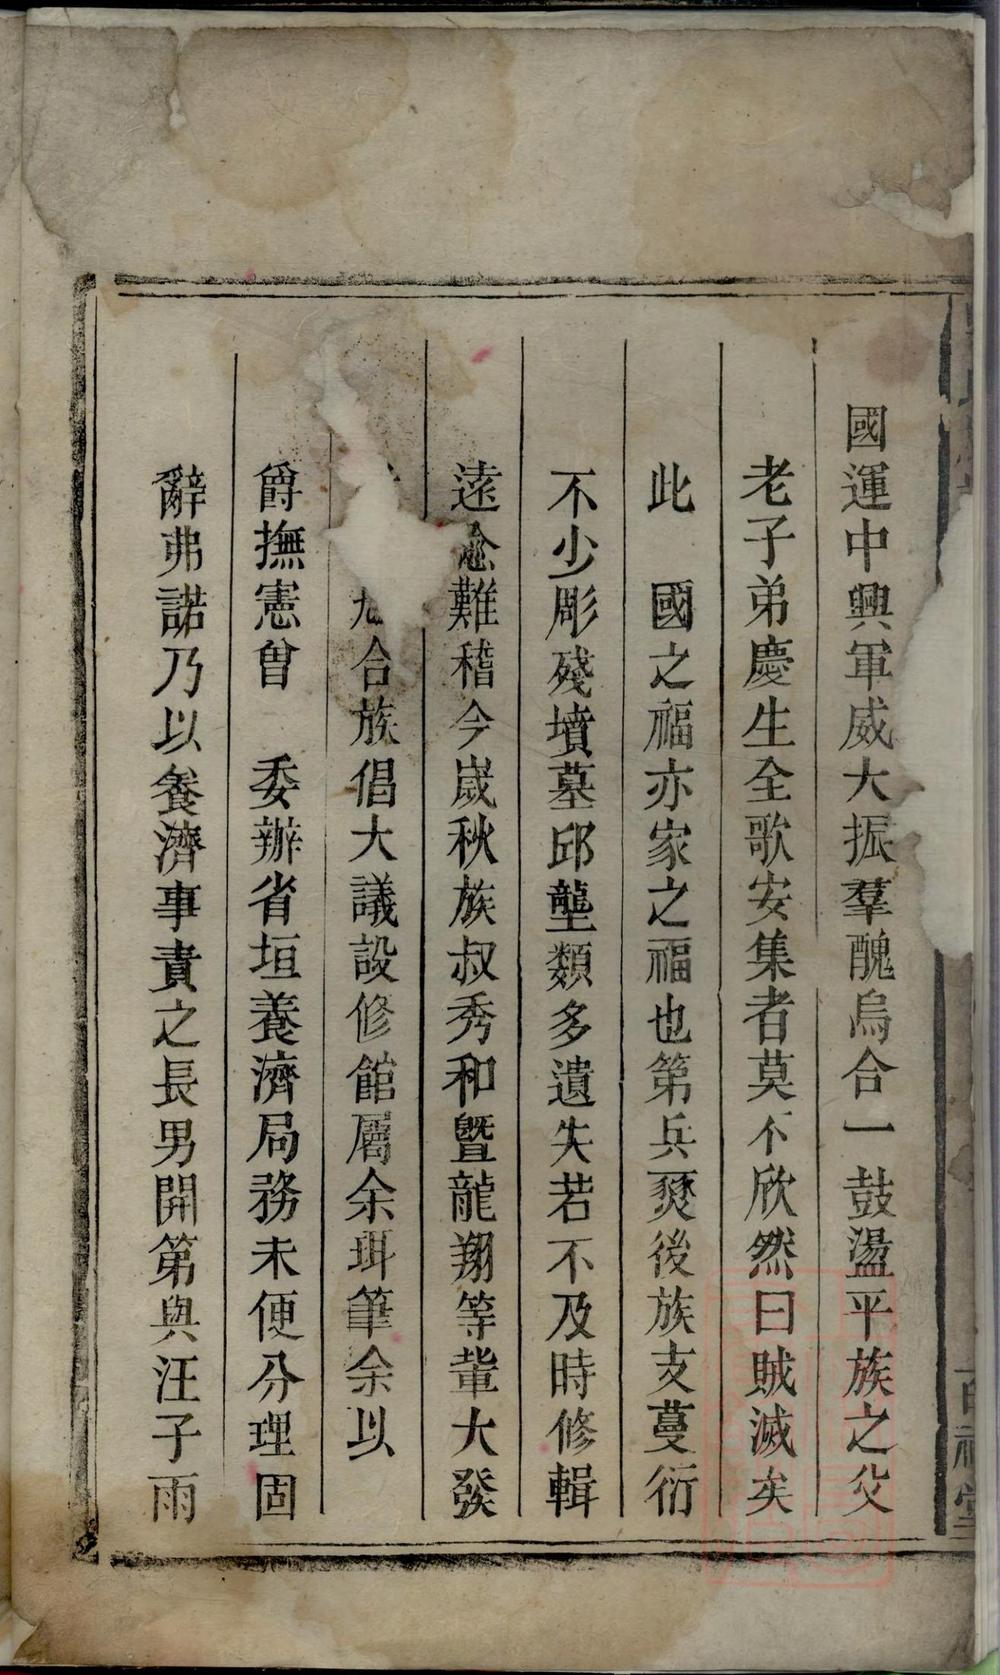 國運中興軍威大振羣醜烏合一鼓盪平族之父
老子弟慶生全歌安集者莫不欣然曰賊滅矣
此　國之福亦家之福也第兵燹後族支蔓衍
不少彫殘墳墓邱壟類多遺失若不及時修輯
遠愈難稽今歲秋族叔秀和暨龍翔等輩大發
合族倡大議設修館屬余珥筆余以
爵撫憲曾　委辦省垣養濟局務未便分理固
辭弗諾乃以養濟事責之長男開第與汪子雨